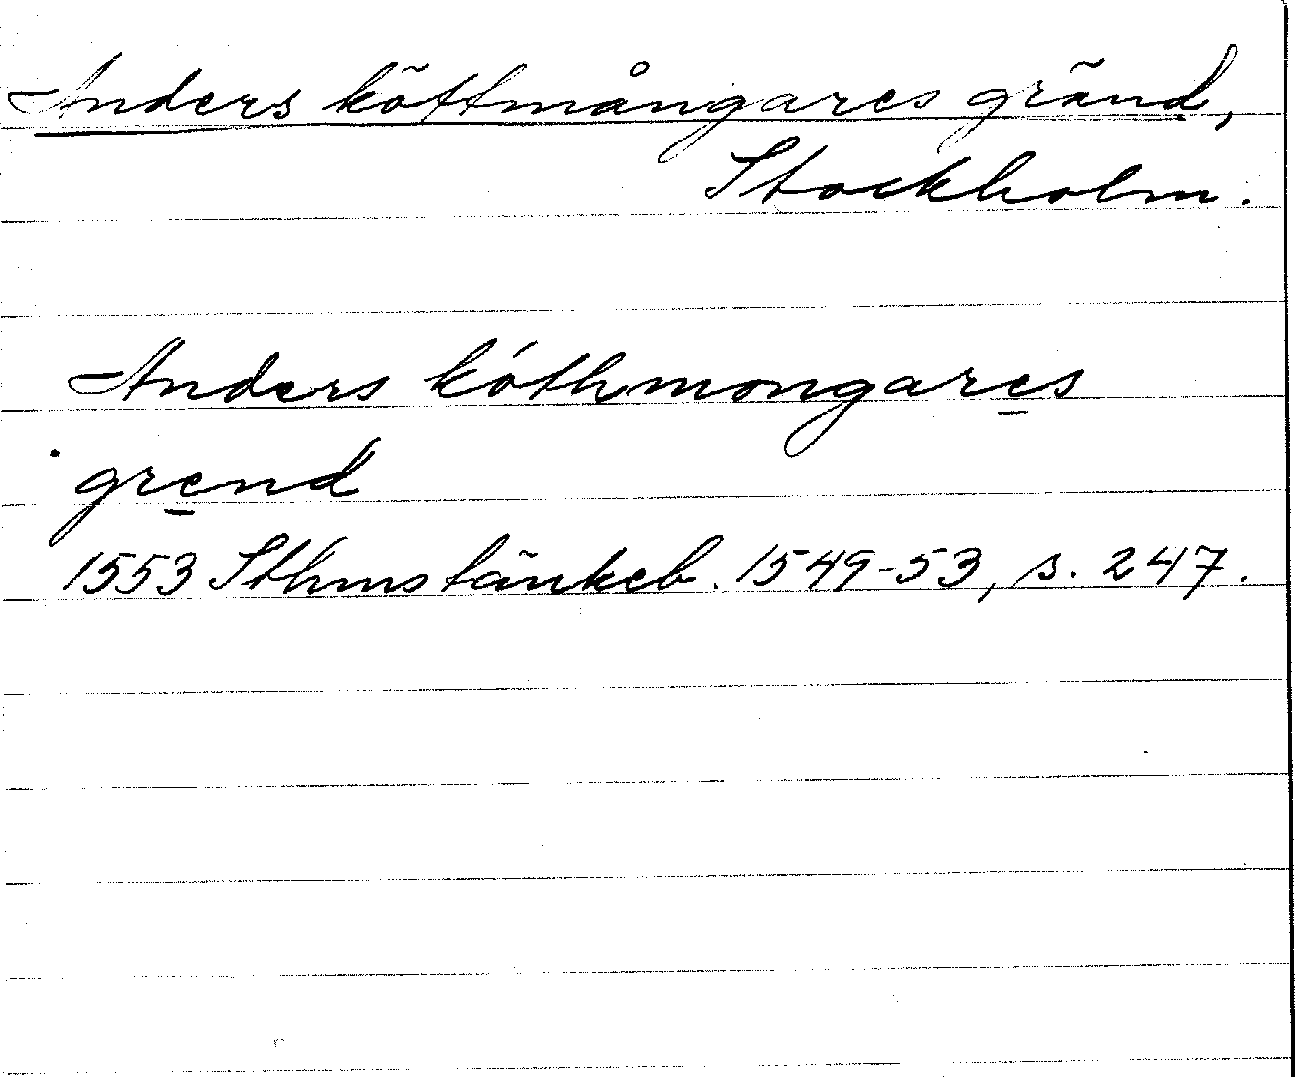 Anders köttmångares gränd,
Stockholm.
Anders kóthmongares
grend
1553 Sthms tänkeb. 1549-53, s. 247.